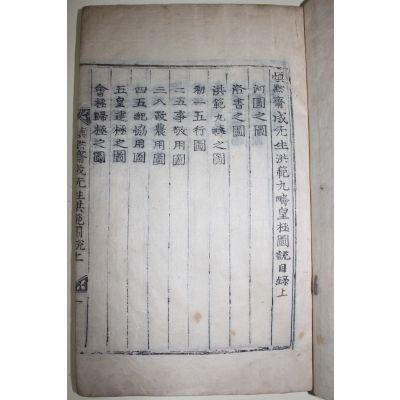 慎默齋成先生洪範九疇皇極圖說目錄上
河圖之圖
洛書之圖
洪範九疇之圖
初一五行圖
二五事敬用圖
三八政農用圖
四五紀協用圖
五皇建極之圖
會極歸極之圖
慎默齋成先生洪範圖說上
一